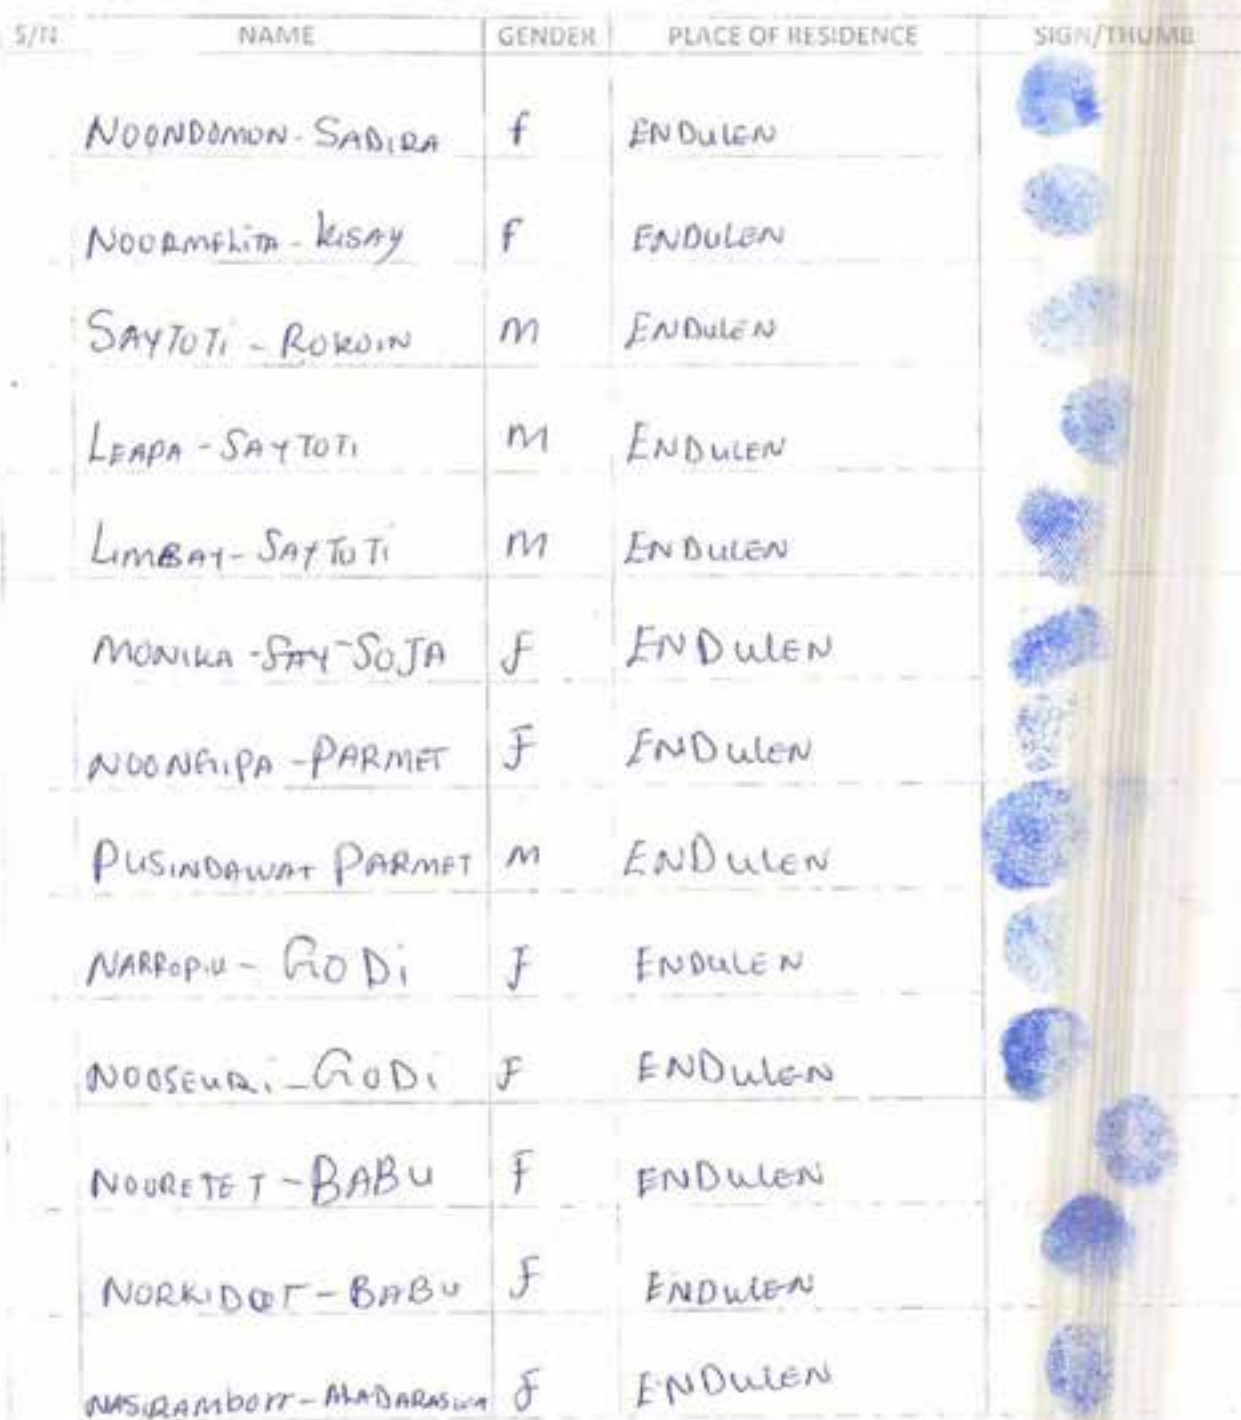 S/N NAME GENDER PLACE OF RESIDENCE SIGN/THUMB
NOONDOMON - SADIRA f ENDULEN
NOORMELITA - KISAY f ENDULEN
SAYTOTi - ROKOIN M ENDULEN
LEAPA - SAYTOTi M ENDULEN
LIMBAY - SAYTOTi M ENDULEN
MONIKA - SAY - SOJA F ENDULEN
PARMET F ENDULEN
PUSINDAWAT PARMET M ENDULEN
NARROPIU - GODi F ENDULEN
GODi F ENDULEN
NOORETET - BABU F ENDULEN
BABU F ENDULEN
F ENDULEN